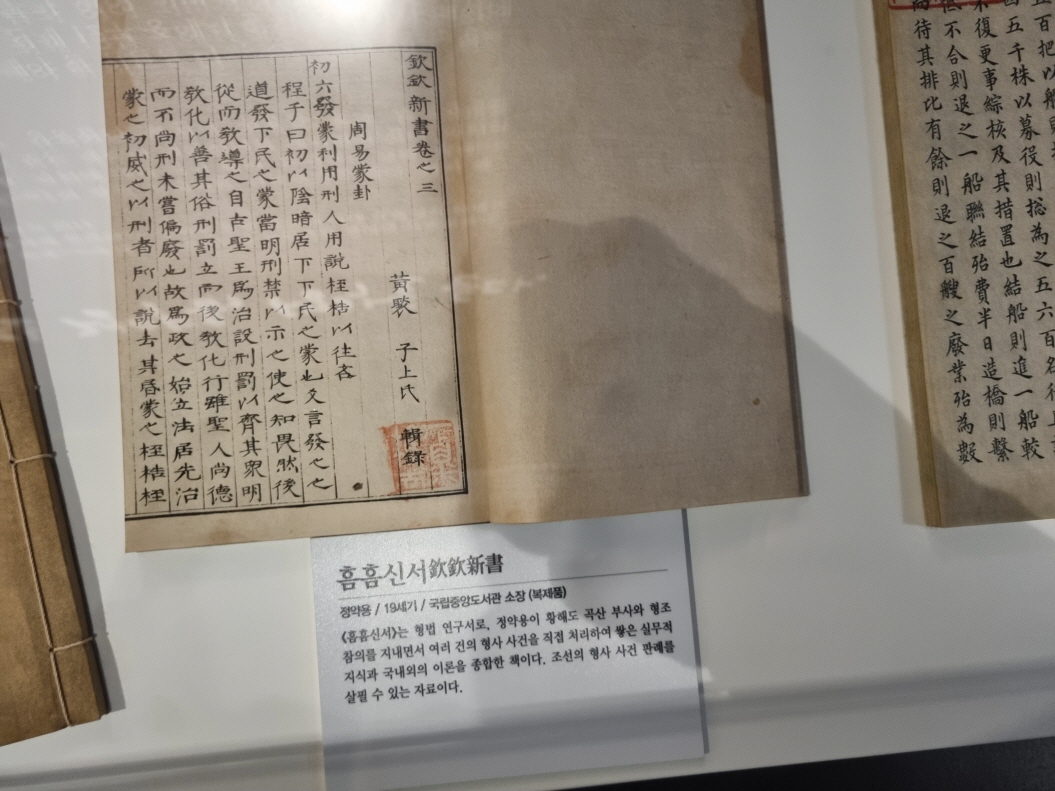 欽欽新書卷之三
黃褧 子上氏 輯錄
周易蒙卦
初六發蒙利用刑人用說桎梏以往吝
程子曰初以陰暗居下下民之蒙也爻言發之之
道發下民之蒙當明刑禁以示之使之知畏然後
從而教導之自古聖王爲治設刑罰以齊其衆明
教化以善其俗刑罰立而後教化行雖聖人尚德
而不尚刑未嘗偏廢也故爲政之始立法居先治
蒙之初威之以刑者所以說去其昏蒙之桎梏桎
五百把以船
四五千株以募役則摠為之五六百名
復更事綜核及其措置也結船則進一船較
低不合則退之一船聯結殆費半日造橋則繫
待其排比有餘則退之百艘之廢業殆為數
흠흠신서欽欽新書
정약용 / 19세기 / 국립중앙도서관 소장 (복제품)
《흠흠신서》는 형법 연구서로, 정약용이 황해도 곡산 부사와 형조
참의를 지내면서 여러 건의 형사 사건을 직접 처리하여 쌓은 실무적
지식과 국내외의 이론을 종합한 책이다. 조선의 형사 사건 판례를
살필 수 있는 자료이다.